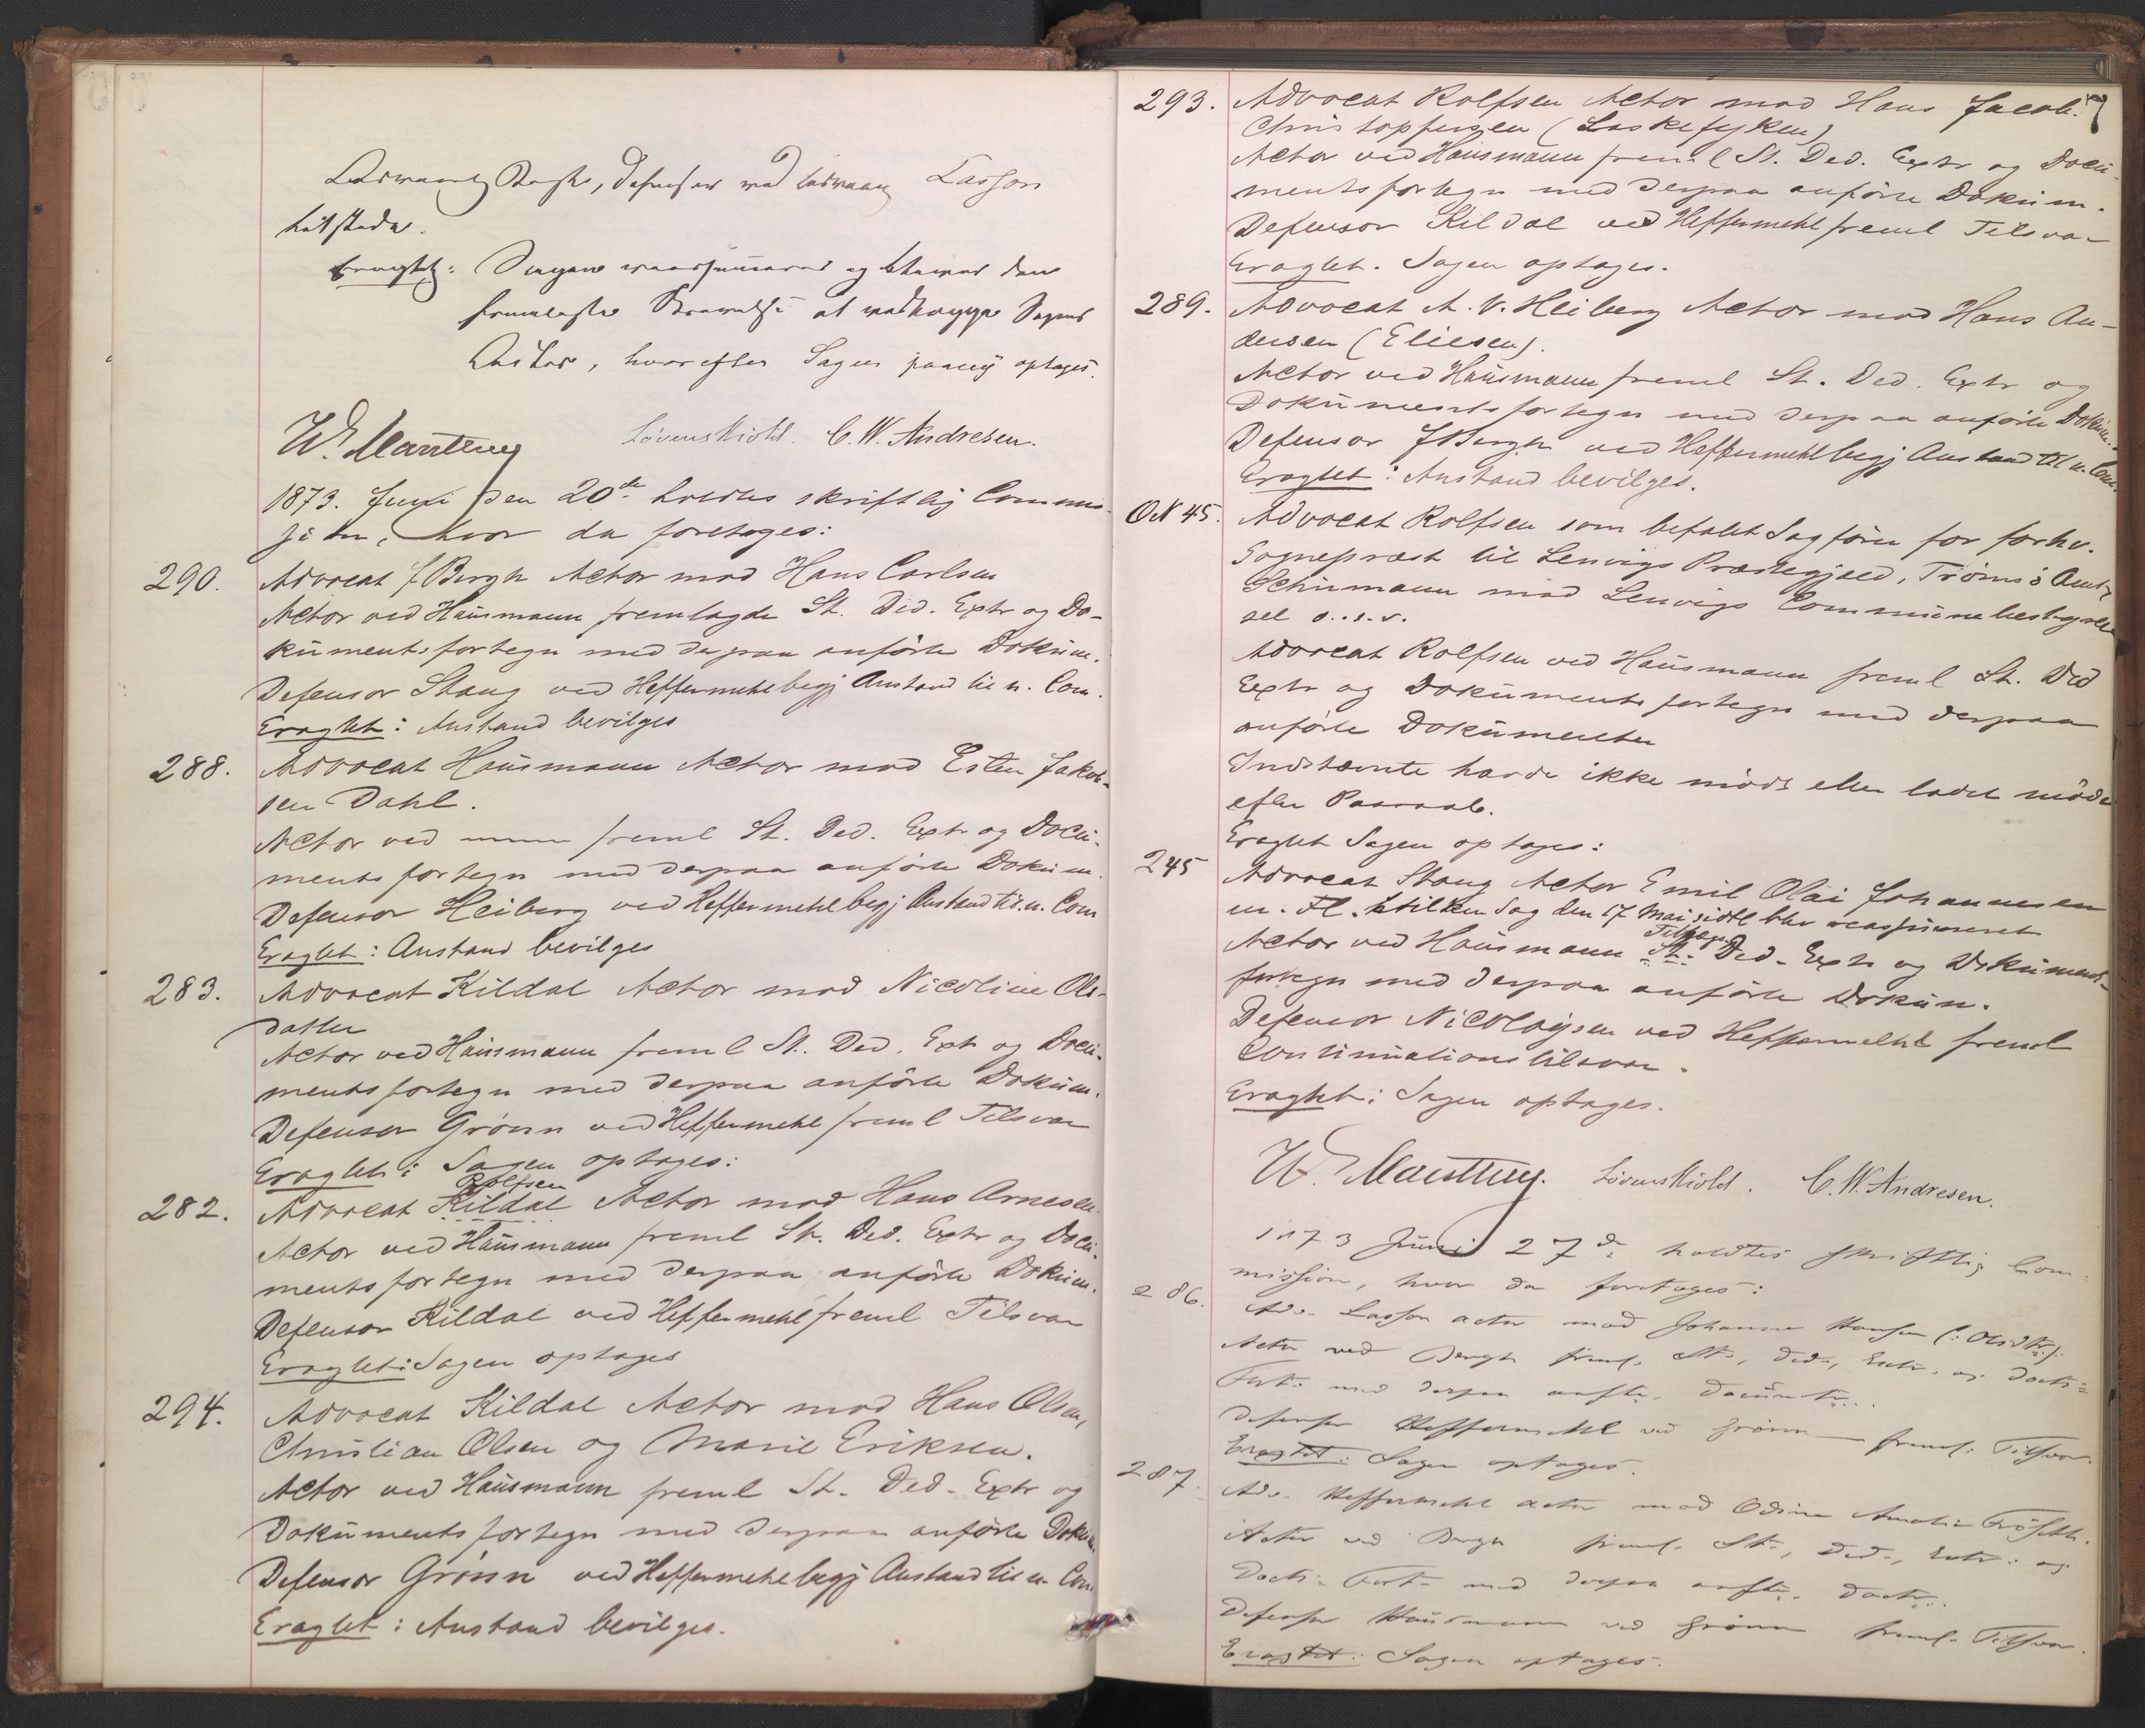 Advocat Bergh, Defensor ved Advocat Lasson
tilstede.
Eragtet: Sagen reassumeres og bliver den
fremlagte Skrivelse at vedlægge Sagens
Acter, hvorefter Sagen paany optages.
Løvenskiold. C. W. Andresen.
1873. Juni den 20de holdtes skriftlig Commis-
sion, hvor da foretoges:
290. Advocat J Bergh Actor mod Hans Carlsen
Actor ved Hausmann fremlagde St. Ded. Extr og Do-
kumentsfortegn med derpaa anförte Dokum.
Defensor Stang ved Heffermehl begj Anstand til n. Com.
Eragtet: Anstand bevilges
288. Advocat Hausmann Actor mod Esten Jakob-
sen Dahl.
Actor ved freml St. Ded. Extr og Docu-
mentsfortegn med derpaa anförte Dokum.
Defensor Heiberg ved Heffermehl begj Anstand til n. Com
Eragtet: Anstand bevilges
283. Advocat Kildal Actor mod Nicoline Ols-
datter
Actor ved Hausmann freml St. Ded. Extr og Docu-
mentsfortegn med derpaa anförte Dokum.
Defensor Grönn ved Heffermehl freml Tilsvar
Eragtet: Sagen optages:
Rolfsen
282. Advocat Kildal Actor mod Hans Arnesen.
Actor ved Hausmann freml St. Ded. Extr og Docu-
mentsfortegn med derpaa anförte Dokum.
Defensor Kildal ved Heffermehl freml Tilsvar
Eragtet: Sagen optages
294. Advocat Kildal Actor mod Hans Olsen,
Christian Olsen og Marie Eriksen.
Actor ved Hausmann freml St. Ded. Extr og
Dokumentsfortegn med derpaa anförte Dokum.
Defensor Grönn ved Heffermehl begj Anstand til n. Com
Eragtet: Anstand bevilges.
7
293. Advocat Rolfsen Actor mod Hans Jacob
Christophersen (Laskefyken)
Actor ved Hausmann freml St. Ded. Extr og Docu-
mentsfortegn med derpaa anförte Dokum.
Defensor Kildal ved Heffermehl freml Tilsvar
Eragtet. Sagen optages.
289. Advocat A. V. Heiberg Actor mod Hans An-
dersen (Eliesen).
Actor ved Hausmann freml St. Ded. Extr og
Dokumentsfortegn med derpaa anförte Dokum.
Defensor J Bergh ved Heffermehl begj Anstand til n. Com.
Eragtet: Anstand bevilges.
ON 45. Advocat Rolfsen som befalet Sagförer for forhv.
Sognepræst til Lenvigs Præstegjæld, Trömsö Amt,
Schumann mod Lenvigs Communebestyrelse
sel o. s. v.
Advocat Rolfsen ved Hausmann freml St. Ded
Extr og Dokumentsfortegn med derpaa
anförte Dokumenter
Indstævnte havde ikke mödt eller ladet möde
efter Paaraab.
Eragtet Sagen optages:
245 Advocat Stang Actor Emil Olai Johannesen
m. Fl. hvilken Sag den 17 Mai sidstl blev reassumeret
Tillægs
Actor ved Hausmann St. Ded. Extr og Dokuments-
fortegn med derpaa anförte Dokum.
Defensor Nicolaysen ved Heffermehl freml
Continuationstilsvar.
Eragtet: Sagen optages.
Løvenskiold. C. W. Andresen.
1873 Juni 27de holdtes skriftlig Com-
mission, hvor da foretoges:
286. Adv. Lasson actor mod Johanne Hansen (: Olsdtr:).
Actor ved Bergh freml. St., Ded., Extr. og Docts-
Fort. med derpaa anfte. Documtr..
Defensor Heffermehl ved Grönn freml. Tilsvar.
Eragtet: Sagen optages.
287. Adv. Heffermehl actor mod Odine Amalie
Actor ved Bergh freml. St., Ded., Extr. og
Docts- Fort. med derpaa anfte. Doctr..
Defensor Hausmann ved Grönn freml. Tilsvar.
Eragtet: Sagen optages.